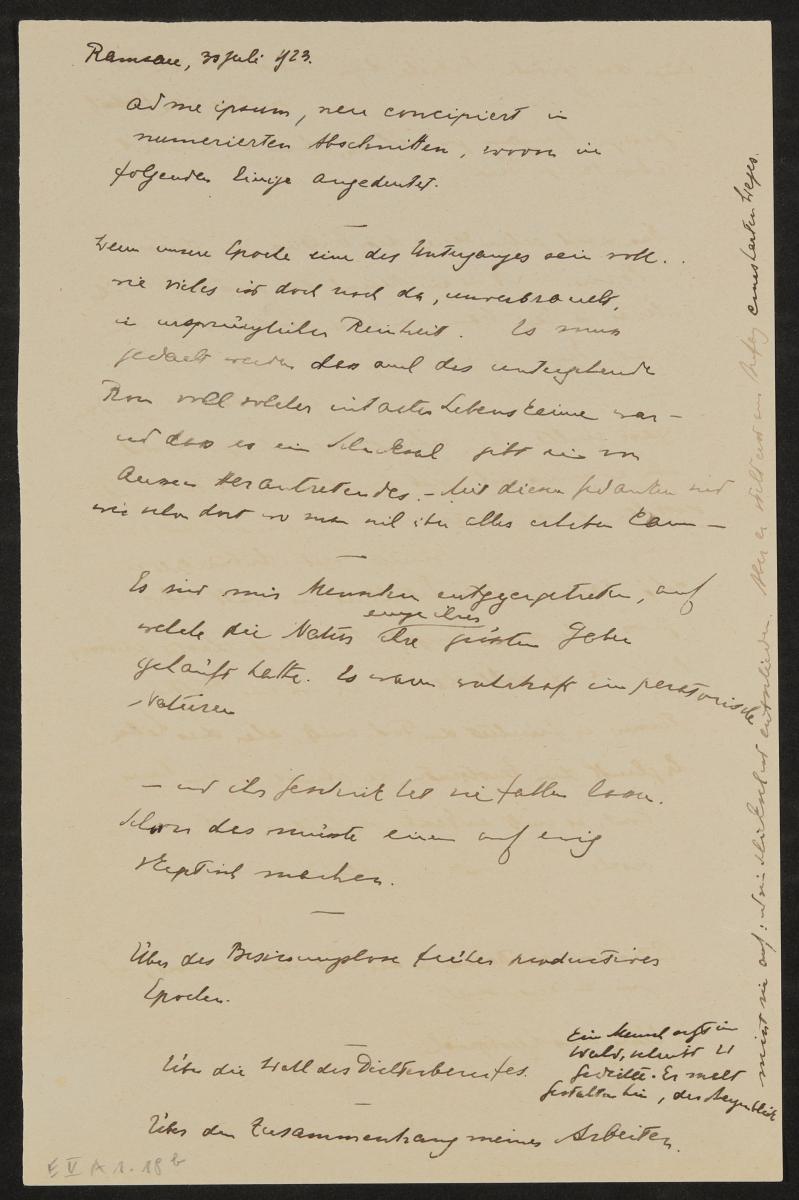 Ramsau, 30 Juli 923.
ad me ipsum, neu concipiert in
numerierten Abschnitten, wovon im
folgenden Einige angedeutet.
Wenn unsere Epoche eine des Unterganges sein soll..
wie vieles ist doch noch da, unverbraucht,
in ursprünglicher Reinheit. Es muss
gedacht werden dass auch das untergehende
Rom voll solcher intacter Lebenskeime war –
und dass es ein Schicksal gibt ein von
Aussen Herantretendes. – Mit diesen Gedanken sind
wir schon dort wo man sich über alles erheben kann –
Es sind mir Menschen entgegengetreten, auf
einige ihrer
welche die Natur ihre grössten Gaben
gehäuft hatte. Es waren wahrhaft imperatorische
Naturen
– und ihr Geschick liess sie fallen
Schon das müsste einen auf ewig
skeptisch machen.
Über das Besinnungslose früher productiver
Epochen.
Über die Wahl des Dichterberufes.
Ein Mensch sitzt im
Wald, schreibt
Gedichte. Er malt
Gestalten hin, der Augenblick
nimmt sie auf: sein Schicksal ist entschieden. Aber er steht erst am Anfang eines harten Weges.
Über den Zusammenhang meiner Arbeiten.
E V A 1. 18 b